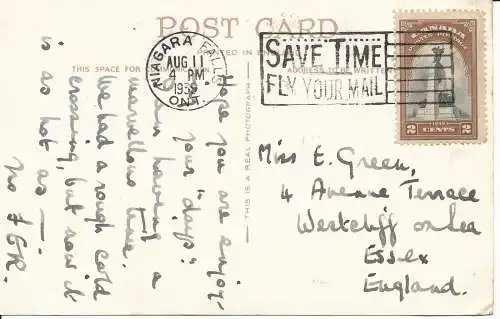 POST CARD
PRINTED IN
THIS SPACE FOR
ADDRESS TO BE WRITTEN
NIAGARA FALLS
AUG 11
4 PM
ONT.
SAVE TIME
FLY YOUR MAIL
CANADA
2 CENTS 2
THIS IS A REAL PHOTOGRAPH
Hope you are enjoy-
your "days".
am having a
marvellous time.
We had a rough cold
crossing, but now it
is as hot as —
Miss E. Green,
4 Avenue Terrace
Westcliff on Sea
Essex
England.